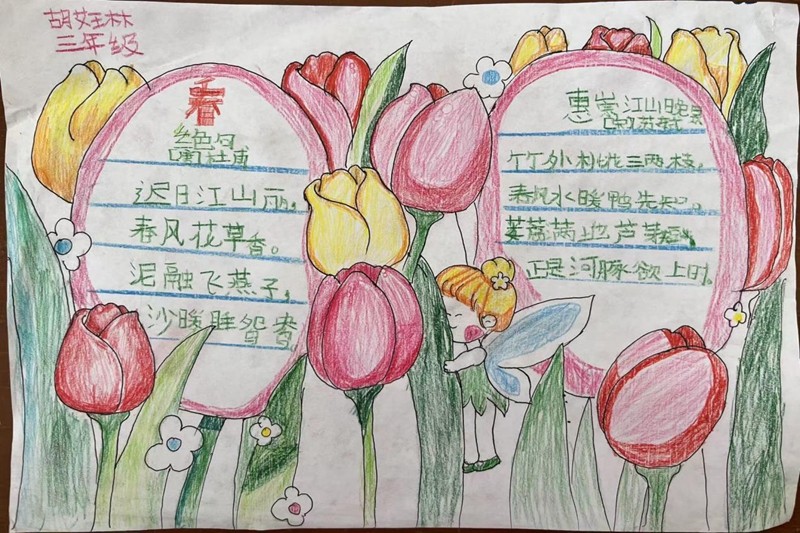 胡
三年级
春
绝句
[唐]杜甫
迟日江山丽,
春风花草香。
泥融飞燕子,
沙暖睡鸳鸯
惠崇江山晚景
[宋]苏轼
竹外桃花三两枝,
春风水暖鸭先知。
蒌蒿满地芦芽短,
正是河豚欲上时。